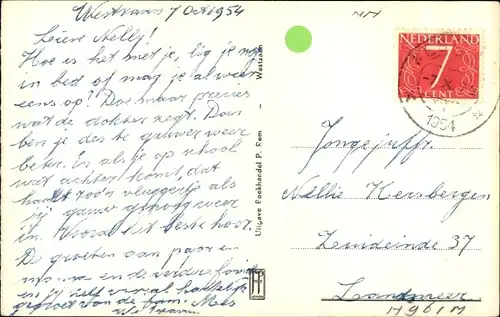 Westzaan 7 Oct 1954
Lieve Nelly!
Hoe is het met je, lig je nog
in bed of mag je al weer
eens op? Doe maar precies
wat de dokter zegt. Dan
ben je des te gauwer weer
beter. En als je op school
wat achter komt, dat
haalt zo'n vluggertje als
jij gauw genoeg weer
in. Vooral het beste hoor.
De groeten aan papa en
mama en de verdere familie
en jij zelf vooral hartelijk
gegroet van de fam. Mols
Westzaan
Uitgave Boekhandel P. Rem - Westzaan
NEDERLAND
7
CENT
1954
Jongejuffr.
Nellie Kersbergen
Zuideinde 37
Landsmeer
H961M